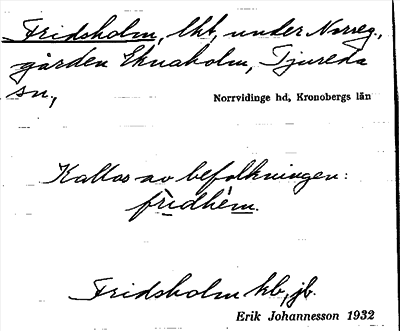 Fridsholm, lht, under Norreg.,
gården Eknaholm, Tjureda
sn,
Norrvidinge hd, Kronobergs län
Kallas av befolkningen:
frìdhém.
Fridsholm hb, jb.
Erik Johannesson 1932